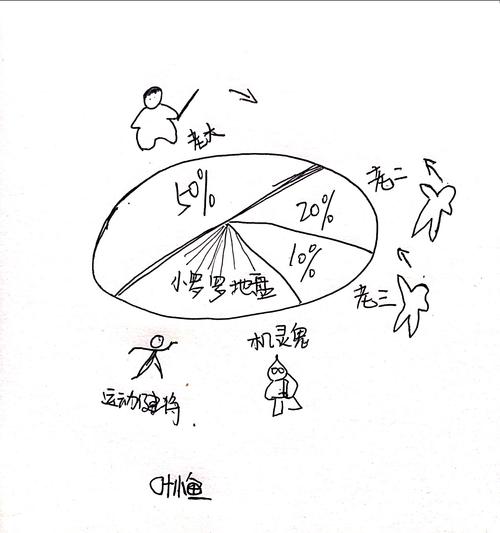 老大
50%
老二
20%
10%
小罗罗地盘
老三
机灵鬼
运动健将
叶小鱼